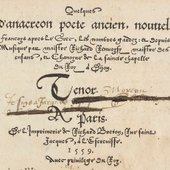 Quelques
d'anacreon poete ancien, nouvel
françoys apres le Grec, les nombres gardez: et depuis
Musique par maistre Richard Renvoysy maistre des
enfans, et Chanoyne de la saincte chapelle
du Roy, à Dijon.
Tenor.
A Paris.
De l'Imprimerie de Richard Breton, Rue sainct
Jacques, à l'Escrevisse.
1559.
Avec privilege du Roy.